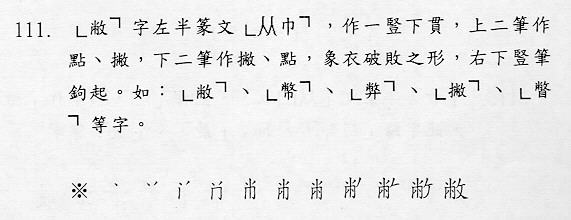 111. ⌞敝⌝字左半篆文⌞㡀⌝,作一豎下貫,上二筆作
點、撇,下二筆作撇、點,象衣破敗之形,右下豎筆
鉤起。如:⌞敝⌝、⌞幣⌝、⌞弊⌝、⌞撇⌝、⌞瞥
⌝等字。
※